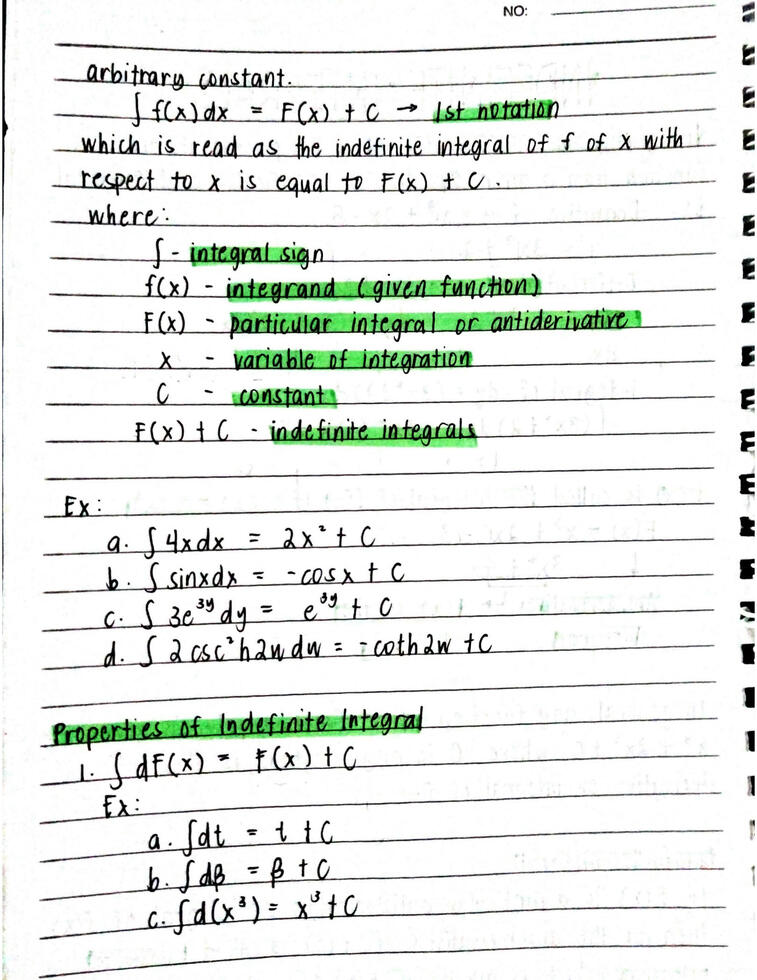 NO:
arbitrary constant.
∫ f(x)dx = F(x) + C → 1st notation
which is read as the indefinite integral of f of x with
respect to x is equal to F(x) + C.
where:
∫ - integral sign
f(x) - integrand (given function)
F(x) - particular integral or antiderivative
x - variable of integration
C - constant
F(x) + C - indefinite integrals
Ex:
a. ∫ 4xdx = 2x² + C
b. ∫ sinxdx = -cosx + C
c. ∫ 3e³ʸ dy = e³ʸ + C
d. ∫ 2 csc²h2w dw = -coth2w + C
Properties of Indefinite Integral
1. ∫ dF(x) = F(x) + C
Ex:
a. ∫dt = t + C
b. ∫dβ = β + C
c. ∫d(x³) = x³ + C